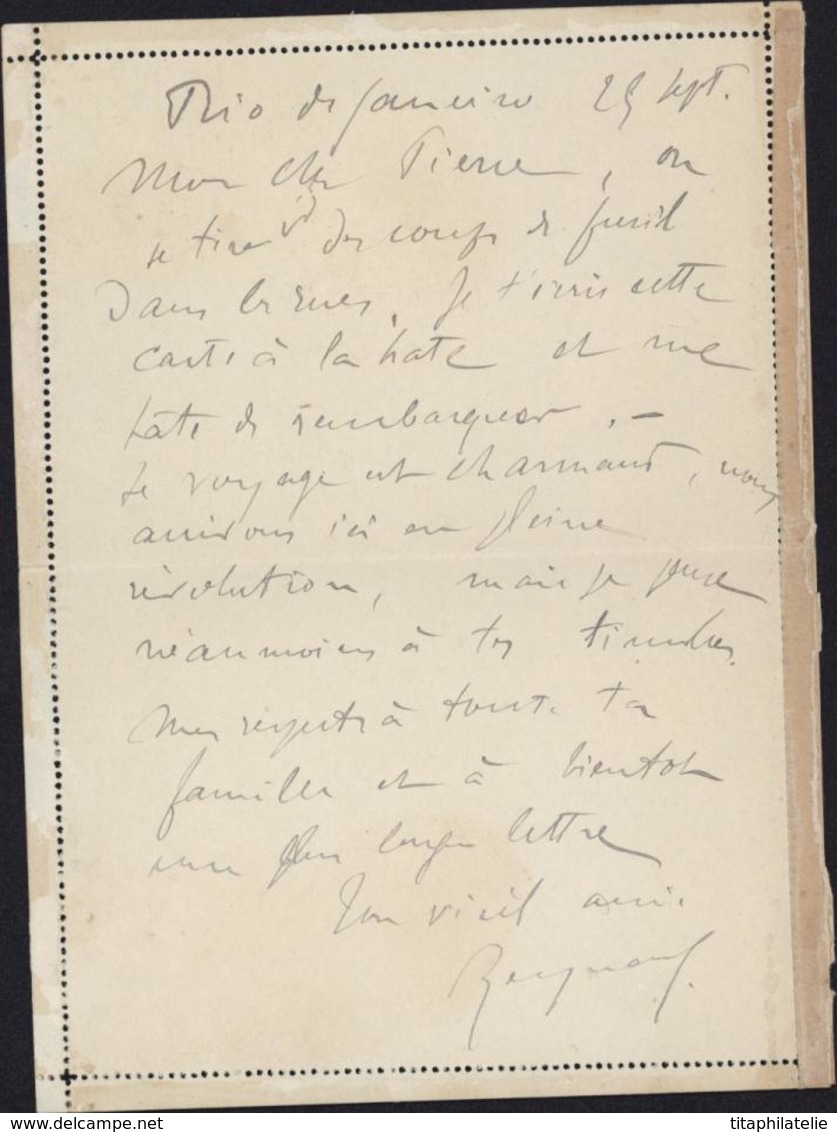 Rio de Janeiro 25 sept.
Mon cher Pierre, on
se tire ici des coups de fusil
dans les rues. Je t'écris cette
carte à la hate et me
hâte de rembarquer. –
Le voyage est charmant, nous
arrivons ici en pleine
révolution, mais je pense
néanmoins à tes timbres.
Mes respects à toute ta
famille et à bientot
une plus longue lettre
Ton vieil ami.
https://www.delcampe.net
titaphilatelie